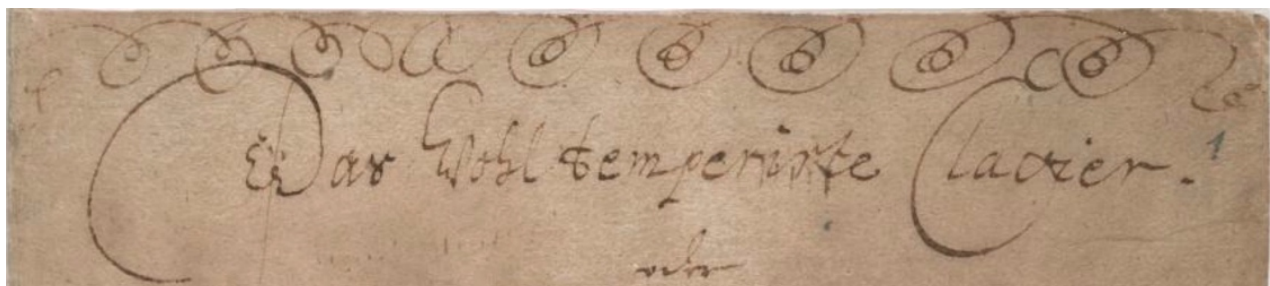 Das Wohltemperirte Clavier.
1
oder